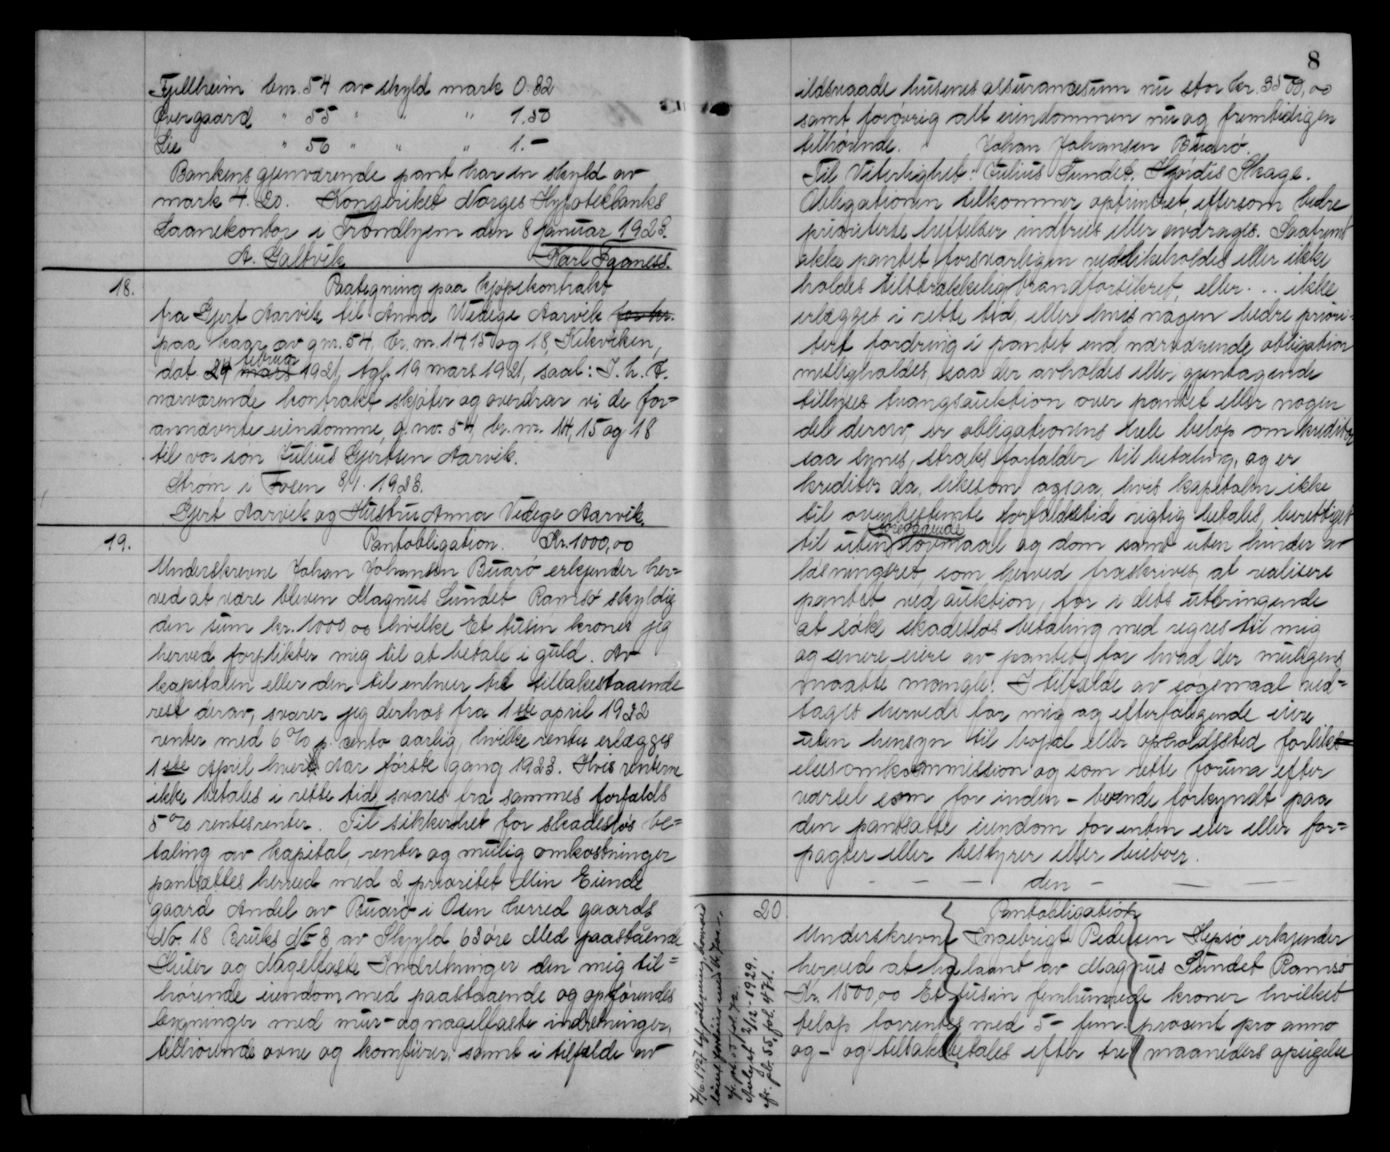 Fjellheim bnr. 54 av skyld mark 0.82
Øvergaard " 55 " " " 1.50
Lie " 56 " " " 1.-
Bankens gjenværende pant har en skyld av
mark 4.20. Kongeriket Norges Hypotekbanks
Laanekontor i Trondhjem den 8 januar 1923.
A. Galtvik Karl Paaness.
18. Paategning paa kjøpekontrakt
fra Gjert Aarvik til Anna Vedege Aarvik for kr.
paa kaar av gnr. 54, br. nr. 14 15 og 18, Kilviken,
dat 24 februar mars 1921, tgl. 19 mars 1921, saal: I h. t.
nærværende kontrakt skjøter og overdrar vi de for-
annævnte eiendomme, g. no. 54, br. nr. 14, 15 og 18
til vor søn Julius Gjertsen Aarvik.
Strøm i Fosen 8/1. 1923.
Gjert Aarvik og Hustru Anna Vedege Aarvik.
19. Pantobligation. Kr. 1000,00
Underskrevne Johan Johansen Buarø erkjender her=
ved at være bleven Magnus Sundet Ramsø skyldig
den sum kr. 1000,00 hvilke Et tusin kroner jeg
herved forplikter mig til at betale i guld. Av
kapitalen eller den til enhver tid tilbakestaaende
rest derav, svarer jeg derhos fra 1ste april 1922
renter med 6 % p. cento aarlig, hvilke renter erlægges
1ste April hvert Aar første gang 1923. Hvis renterne
ikke betales i rette tid svares fra sammes forfalds
5 % rentesrenter. Til sikkerhet for skadesløs be=
taling av kapital, renter og mulig omkostninger
pantsættes herved med 2 prioritet Min Eiende
gaard Andel av Buarø i Osen herred gaards
No. 18 Bruks No 8, av Skyld 63 øre Med paastående
Huser og Nagelfaste Indretninger den mig til=
hørende eiendom med paastaaende og opførendes
bygninger med mur- og nagelfaste indretninger,
tilhørende ovne og komfurer, samt i tilfælde av
8
ildsvaade husenes assurancesum nu stor kr. 3500,00
samt forøvrig alt eiendommen nu og fremtidigen
tilhørende. Johan Johansen Buarø.
Til Vitterlighet: Julius Sundet, Hjørdis Skage.
Obligationen tilkommer optrinsret, eftersom bedre
prioriterte heftelser indfries eller avdrages. Saafremt
ikke pantet forsvarligen vedlikeholdes eller ikke
holdes tilstrækkelig brandforsikret, eller ... ikke
erlægges i rette tid, eller hvis nogen bedre priori-
tert fordring i pantet end nærværende obligation
misligholdes, saa der avholdes eller gjentagende
tillyses tvangsauktion over pantet eller nogen
del derav, er obligationens hele beløp om kreditor
saa synes, straks forfalder til betaling, og er
kreditor da, likesom ogsaa, hvis kapitalen ikke
til overbestemte forfaldstid rigtig betales, berettiget
til uten foregaaende lovmaal og dom samt uten hinder av
løsningsret som herved fraskrives, at realisere
pantet ved auktion, for i dets utbringende
at søke skadesløs betaling med regres til mig
og senere eiere av pantet for hvad der muligens
maatte mangle. I tilfælde av søgsmaal ved=
tages herved for mig og efterfølgende eiere
uten hensyn til bopæl eller opholdssted forliks
elseskommission og som rette forum efter
varsel som for inden-boende forkyndt paa
den pantsatte eiendom for enten eier eller for=
pagter eller bestyrer eller beboer.
- - - den - - -
20 Pantobligation
Underskrevne Ingebrigt Pedersen Sepsø erkjender
herved at ha laant av Magnus Sundet Ramsø
Kr. 1500,00 Et tusin femhundrede kroner hvilket
beløp forrentes med 5 - fem - procent pro anno
og - og tilbakebetales efter tre maaneders opsigelse
cfr. pb. 55, fol. 471.